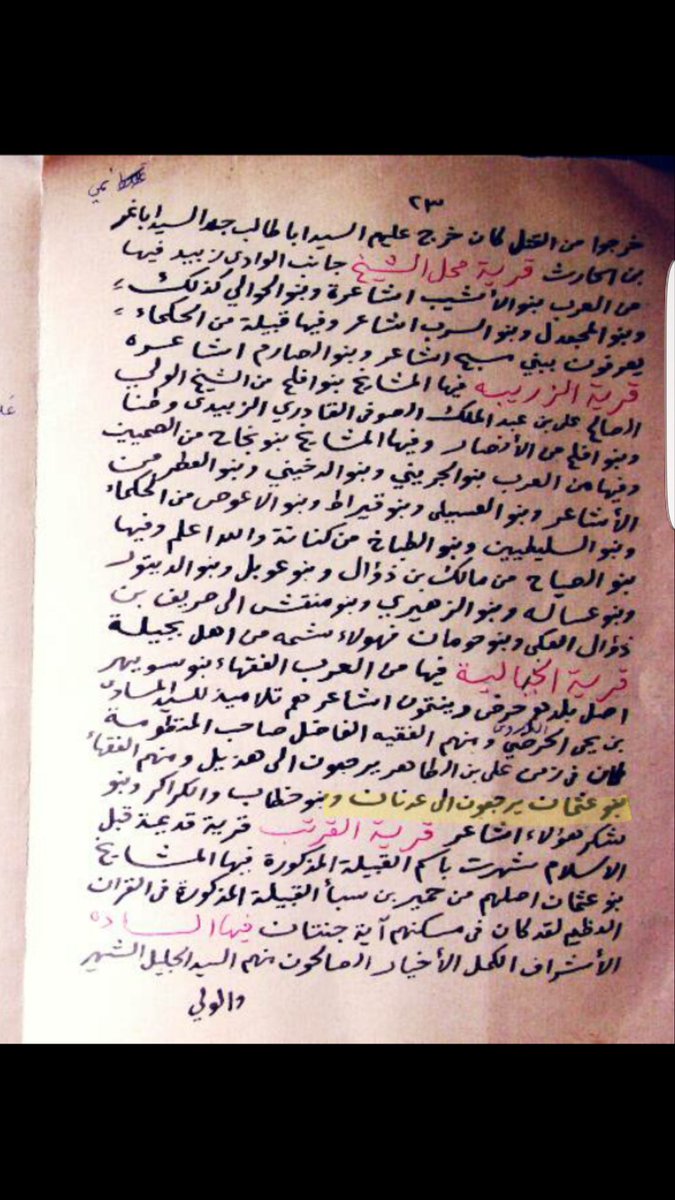 ٢٣
خرجوا من القتل كان خرج عليم السيد ابا طالب جد السيد ابا غمر
بن الحارث قرية محل الشيخ جانب الوادي زبيد فيها
من العرب بنو الأشيب اشاعرة وبنو الحوالي كذلك
وبنو المجمدل وبنو السرب اشاعر وفيها قبيلة من الحكماء
يعرفون ببني مسيح اشاعر وبنو الصارم اشاعره
قرية الزريبه فيها المشايخ بنو افلح من الشيخ الولي
الصالح على بن عبد الملك الصوفى القادري الزبيدى وطنا
وبنو افلح من الأنصار وفيها المشايخ بنو نجاح من العميين
وفيها من العرب بنو الجريني وبنو الدخيني وبنو العطر من
الأشاعر وبنو العسيلى وبنو قيراط وبنو الاعوص من الحكماء
وبنو السليطيين وبنو الطباخ من كنانة والله اعلم وفيها
بنو الصياح من مالك بن ذؤال وبنو عوبل وبنو الدبتور
وبنو عساله وبنو الزهيري وبنو منقش الى حريف بن
ذؤال العكى وبنو حومان فهولاء ستمه من اهل بجيلة
قرية الجبالية فيها من العرب الفقهاء بنو سويهر
اصل بلدهم حرض وينتمون اشاعر هم تلاميذ للسيد المساوى
بن يحى الحرضي ومنهم الفقيه الفاضل صاحب المنظومة
كان فى زمن على بن الطاهر يرجعون الى هذيل ومنهم الفقهاء
بنو عثمان يرجعون الى عدنان وبنو خطاب والكراكر وبنو
شكر هؤلاء اشاعر قرية القرتب قرية قديمة قبل
الاسلام شهرت باسم القبيلة المذكورة فيها المشايخ
بنو عثمان اصلهم من حمير بن سبأ القبيلة المذكورة فى القران
العظيم لقد كان فى مسكنهم آية جنتان فيها الساده
الأشراف الكمل الأخيار الصالحون منهم السيد الجليل الشهير
والولي